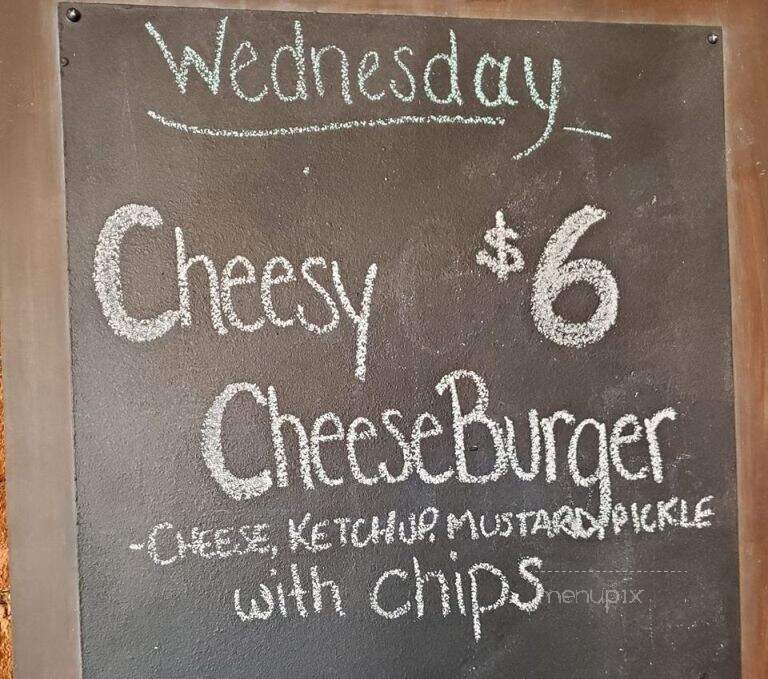 Wednesday
Cheesy $6
CheeseBurger
-CHEESE, KETCHUP, MUSTARD, PICKLE
with chips
menupix